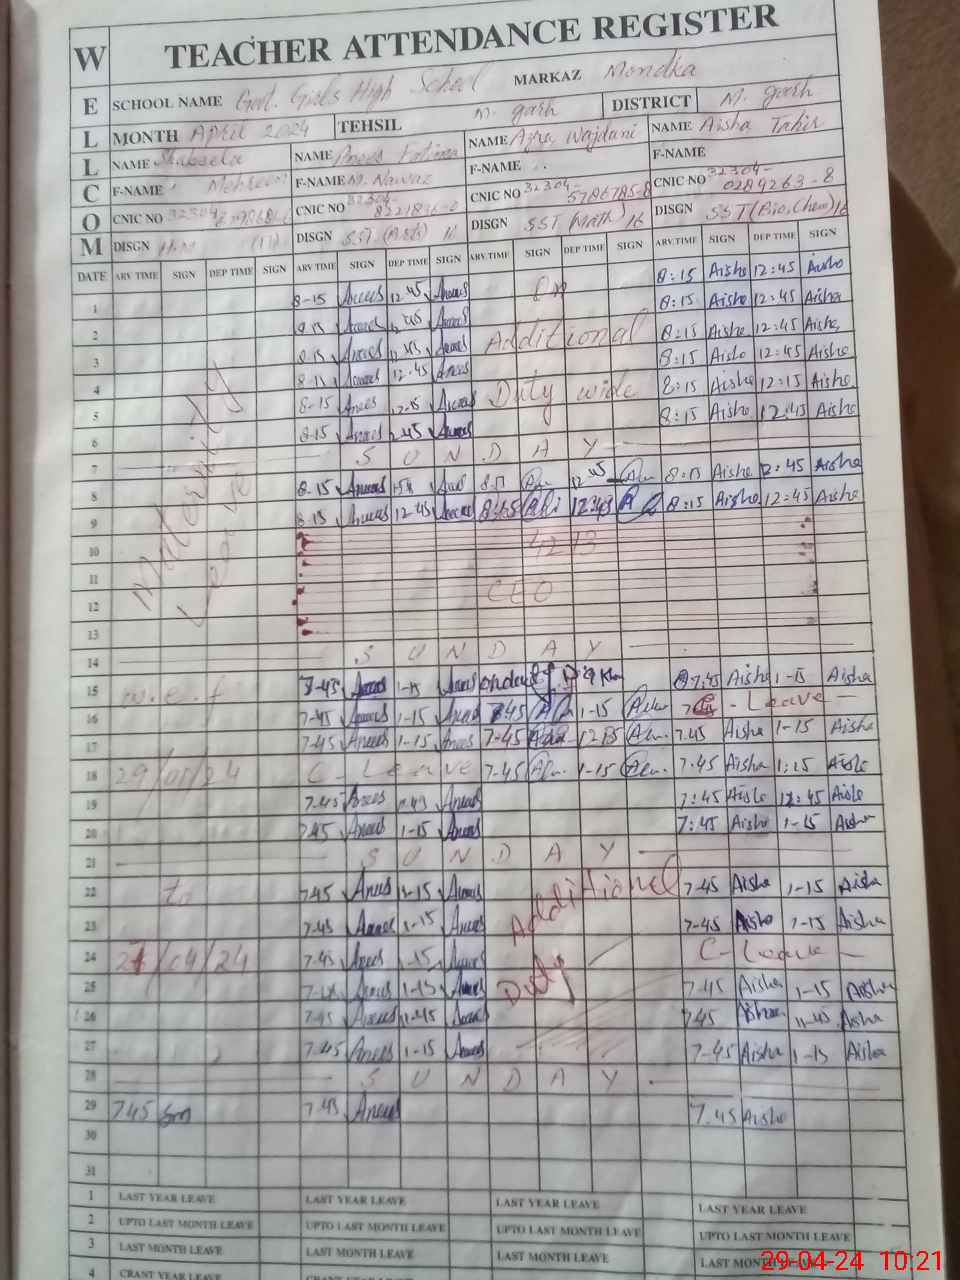 TEACHER ATTENDANCE REGISTER
W E L L C O M
SCHOOL NAME Govt. Girls High School MARKAZ Mondka
MONTH April 2024 TEHSIL M. garh DISTRICT M. garh
NAME Shakeela NAME Anees Fatima NAME Azra Wajdani NAME Aisha Tahir
F-NAME F-NAME M. Nawaz F-NAME F-NAME
CNIC NO 32304- CNIC NO 32304- CNIC NO 32304- 5786785-8 CNIC NO 32304- 0289263-8
DISGN (17) DISGN SST (Arts) 16 DISGN SST (Math) 16 DISGN SST (Bio, Chem) 16
DATE ARV TIME SIGN DEP TIME SIGN ARV TIME SIGN DEP TIME SIGN ARV TIME SIGN DEP TIME SIGN ARV TIME SIGN DEP TIME SIGN
1 8-15 Anees 12-45 Anees On 8:15 Aisha 12:45 Aisha
2 8-15 Anees 12-45 Anees 8:15 Aisha 12:45 Aisha
3 8-15 Anees 12-45 Anees Additional 8:15 Aisha 12:45 Aisha
4 8-15 Anees 12-45 Anees 8:15 Aisha 12:45 Aisha
5 8-15 Anees 12-15 Anees Duty wide 8:15 Aisha 12:15 Aisha
6 8-15 Anees 12-45 Anees 8:15 Aisha 12:45 Aisha
7 SUNDAY
8 8-15 Anees Anees 8:15 12-45 8:15 Aisha 12:45 Aisha
9 8-15 Anees 12-45 Anees 8:15 12:45 8:15 Aisha 12:45 Aisha
Maternity Leave
10
11
12 CEO
13
14 SUNDAY
15 w.e.f 7-45 Anees 1-15 Anees 7:45 Aisha 1-15 Aisha
16 7-45 Anees 1-15 Anees 7-45 1-15 C-Leave
17 7-45 Anees 1-15 Anees 7-45 7-45 Aisha 1-15 Aisha
18 29/01/24 C-Leave 7-45 1-15 7-45 Aisha 1:15 Aisha
19 7-45 Anees Anees 7:45 Aisha 12:45 Aisha
20 7-45 Anees 1-15 Anees 7:45 Aisha 1-15 Aisha
21 SUNDAY
22 to 7-45 Anees 1-15 Anees Additional 7-45 Aisha 1-15 Aisha
23 7-45 Anees 1-15 Anees 7-45 Aisha 1-15 Aisha
24 27/04/24 7-45 Anees 1-15 Anees C-Leave
25 Anees 1-15 Anees Duty 7-45 Aisha 1-15 Aisha
26 7-45 Anees 11-45 Anees 7-45 Aisha 11-45 Aisha
27 7-45 Anees 1-15 Anees 7-45 Aisha 1-15 Aisha
28 SUNDAY
29 7-45 7-45 Anees 7-45 Aisha
30
31
1 LAST YEAR LEAVE LAST YEAR LEAVE LAST YEAR LEAVE LAST YEAR LEAVE
2 UPTO LAST MONTH LEAVE UPTO LAST MONTH LEAVE UPTO LAST MONTH LEAVE UPTO LAST MONTH LEAVE
3 LAST MONTH LEAVE LAST MONTH LEAVE LAST MONTH LEAVE LAST MONTH LEAVE
4
29-04-24 10:21